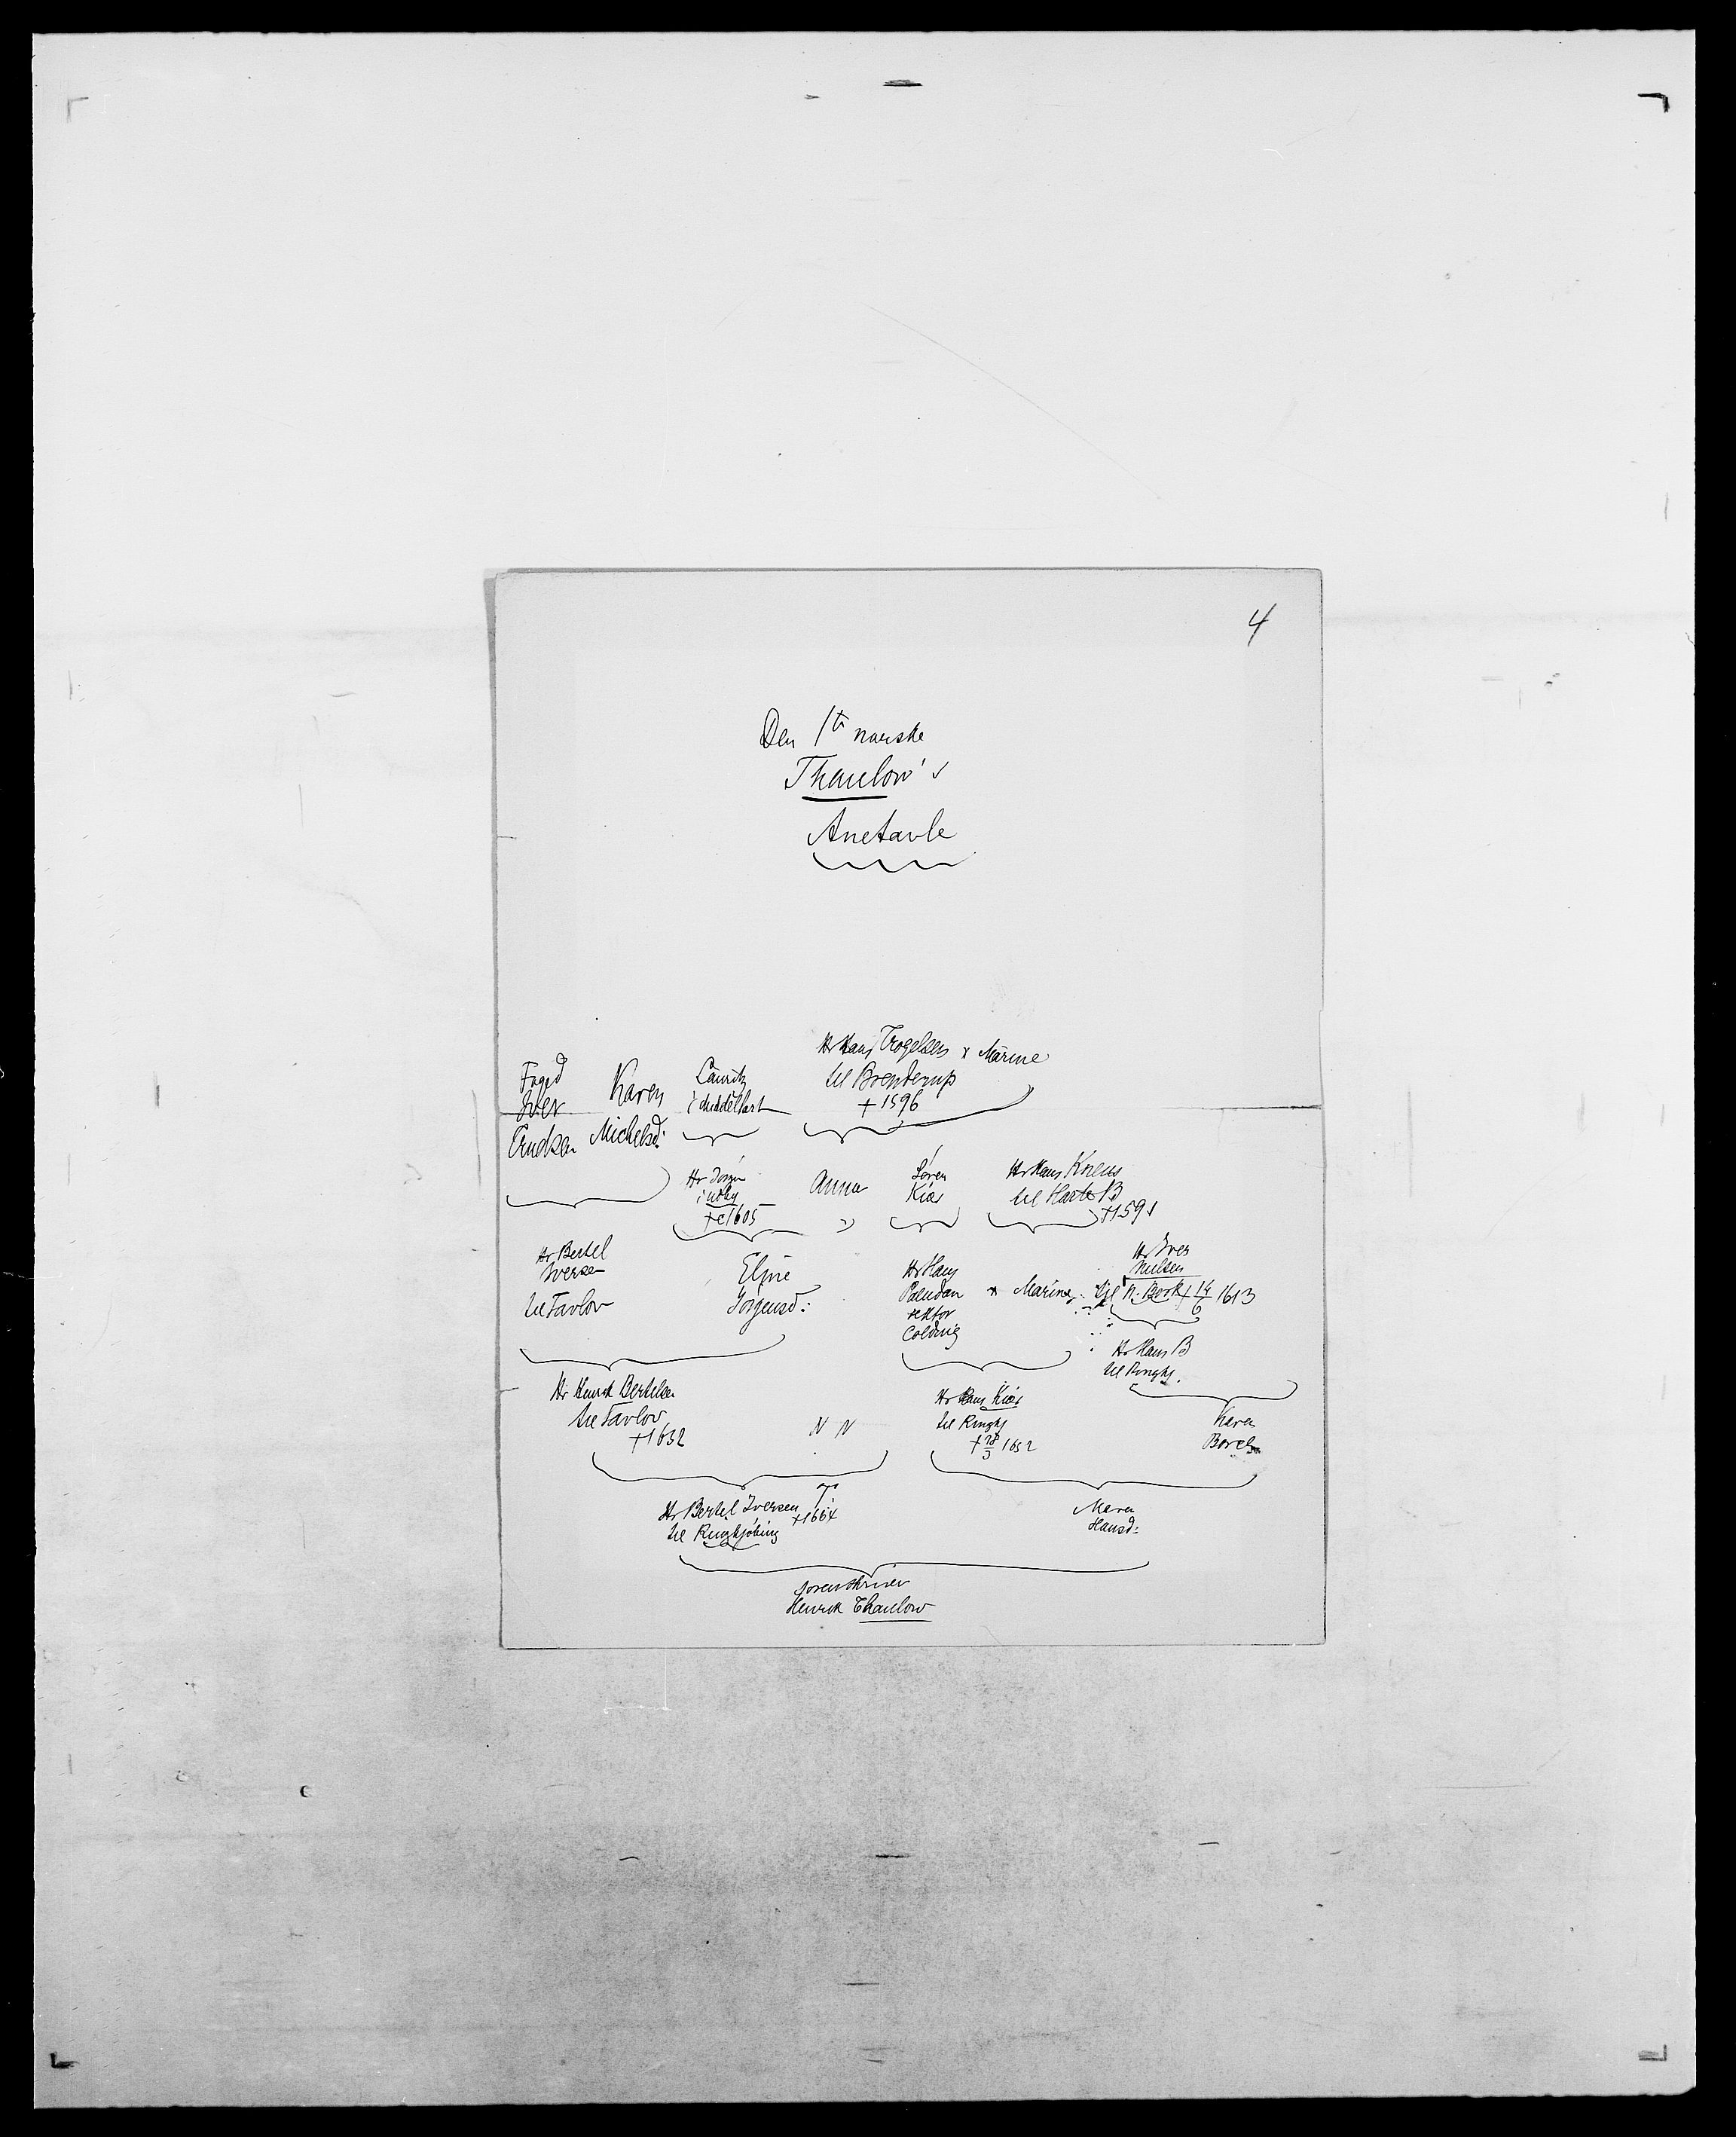 4
Den 1te norske
Thaulow's
Anetavle
Hr Hans Trogelsen x Marine
til Brenderup
+ 1596
Foged
Iver
Knudsen
Karen
Michelsd:
Lauritz
i Middelfart
Hr Jörgen
i Udby
+ c 1605
Anna
Søren
Kiær
Hr Hans Knens
til Harte B
+ 1591
Hr Bertel
Iversen
til Tavlov
Elsne
Jörgensd:
Hr Hans
Paludan
rektor
Colding
x Marine
Hr Iver
Nielsen
til N. Bork + 14/6 1613
Hr Hans B
til Ringkj.
Hr Henrik Bertelsen
til Tavlov
+ 1632
N N
Hr Hans Kiær
til Ringkj
+ 28/3 1652
Karen
Borch
Hr Bertel Iversen + 1664
til Ringkjöbing
Maren
Hansd:
Sorenskriver
Henrik Thaulow